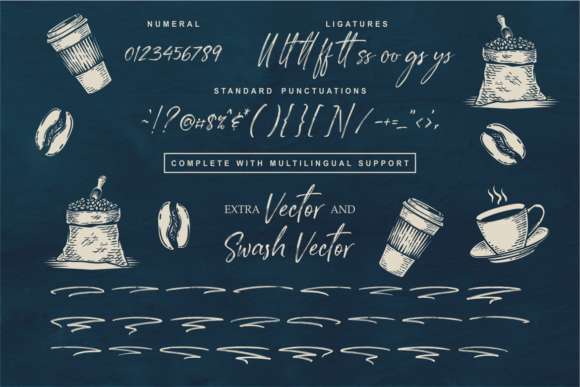 NUMERAL
LIGATURES
0123456789
ll lt tl ff tt ss oo gs ys
STANDARD PUNCTUATIONS
COMPLETE WITH MULTILINGUAL SUPPORT
EXTRA Vector AND
Swash Vector